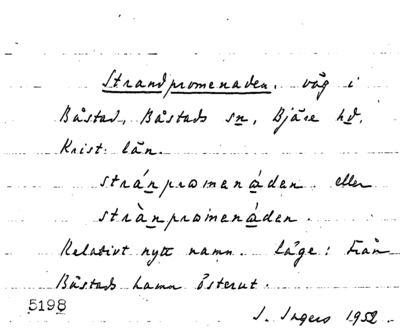 Strandpromenaden. väg i
Båstad, Båstads sn, Bjäre hd.
Krist. län.
stránpromenáden eller
strànpromenáden.
Relativt nytt namn. Läge: Från
Båstads hamn österut.
5198
I. Ingers 1952.